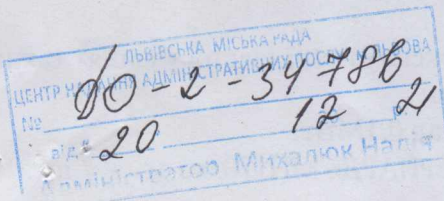 ЛЬВІВСЬКА МІСЬКА РАДА
ЦЕНТР НАДАННЯ АДМІНІСТРАТИВНИХ ПОСЛУГ М. ЛЬВОВА
№ 20-2-34786
від " 20 12 21
Адміністратор Михалюк Надія